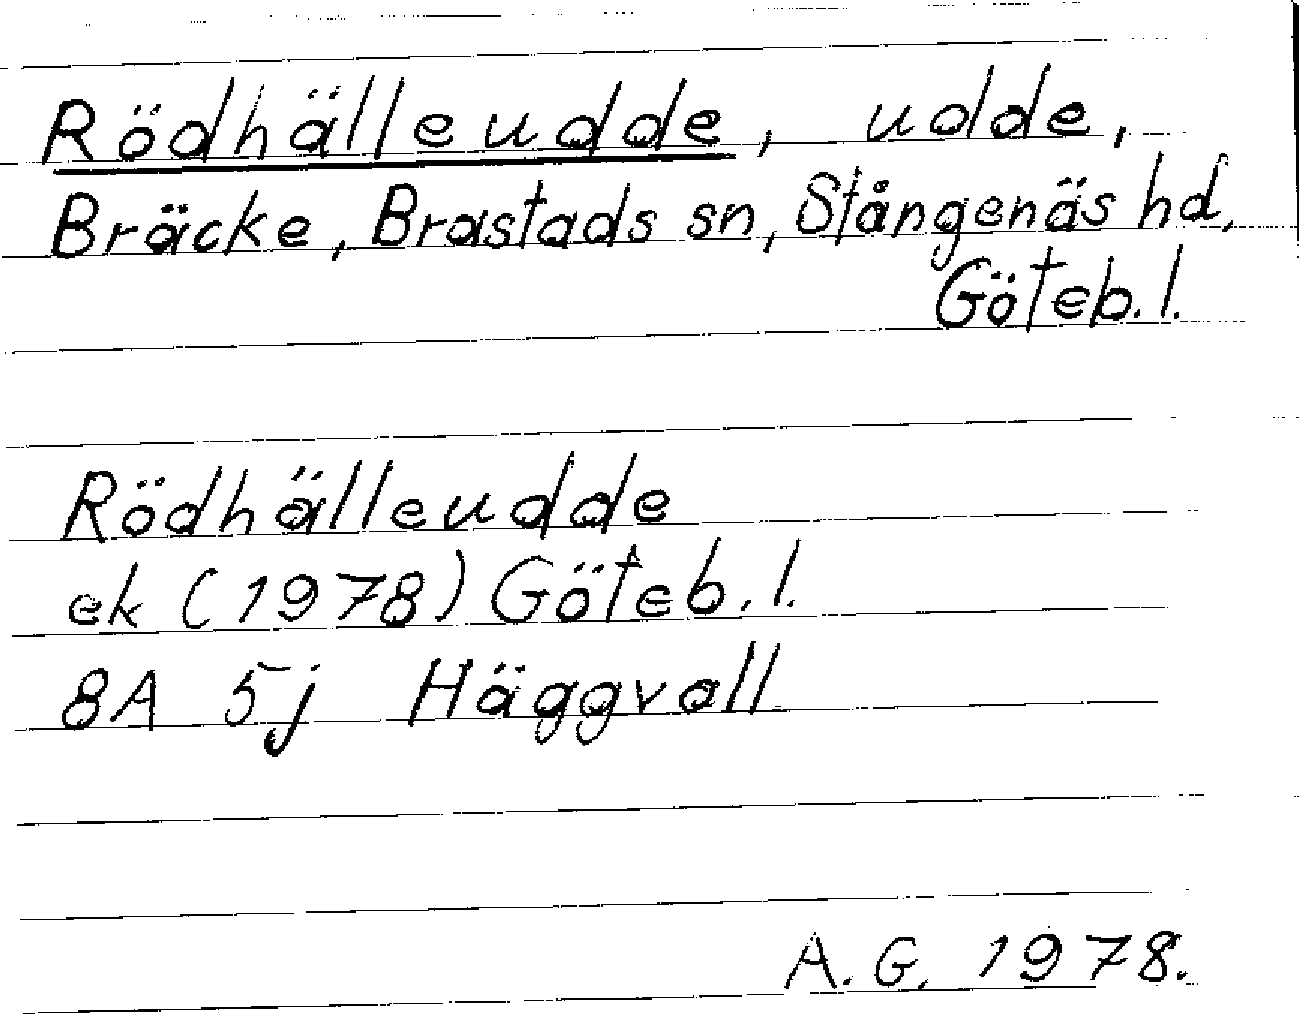 Rödhälleudde, udde,
Bräcke, Brastads sn, Stångenäs hd,
Göteb. l.
Rödhälleudde
ek (1978) Göteb. l.
8A 5j Häggvall
A. G. 1978.